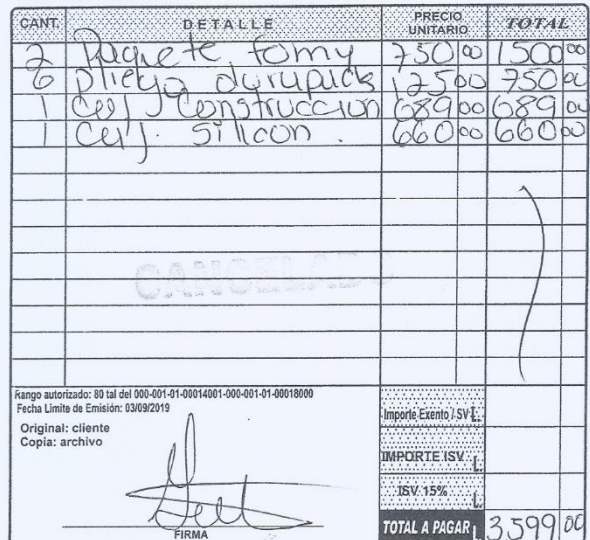 CANT. DETALLE PRECIO UNITARIO TOTAL
2 Paquete fomy 750 00 1500 00
6 pliego durupack 125 00 750 00
1 construccion 689 00 689 00
1 silicon. 660 00 660 00
CANCELADO
Rango autorizado: 80 tal del 000-001-01-00014001-000-001-01-00018000
Fecha Limite de Emisión: 03/09/2019
Original: cliente
Copia: archivo
Importe Exento ISV L.
IMPORTE ISV L.
ISV 15% L.
FIRMA
TOTAL A PAGAR L. 3599 00